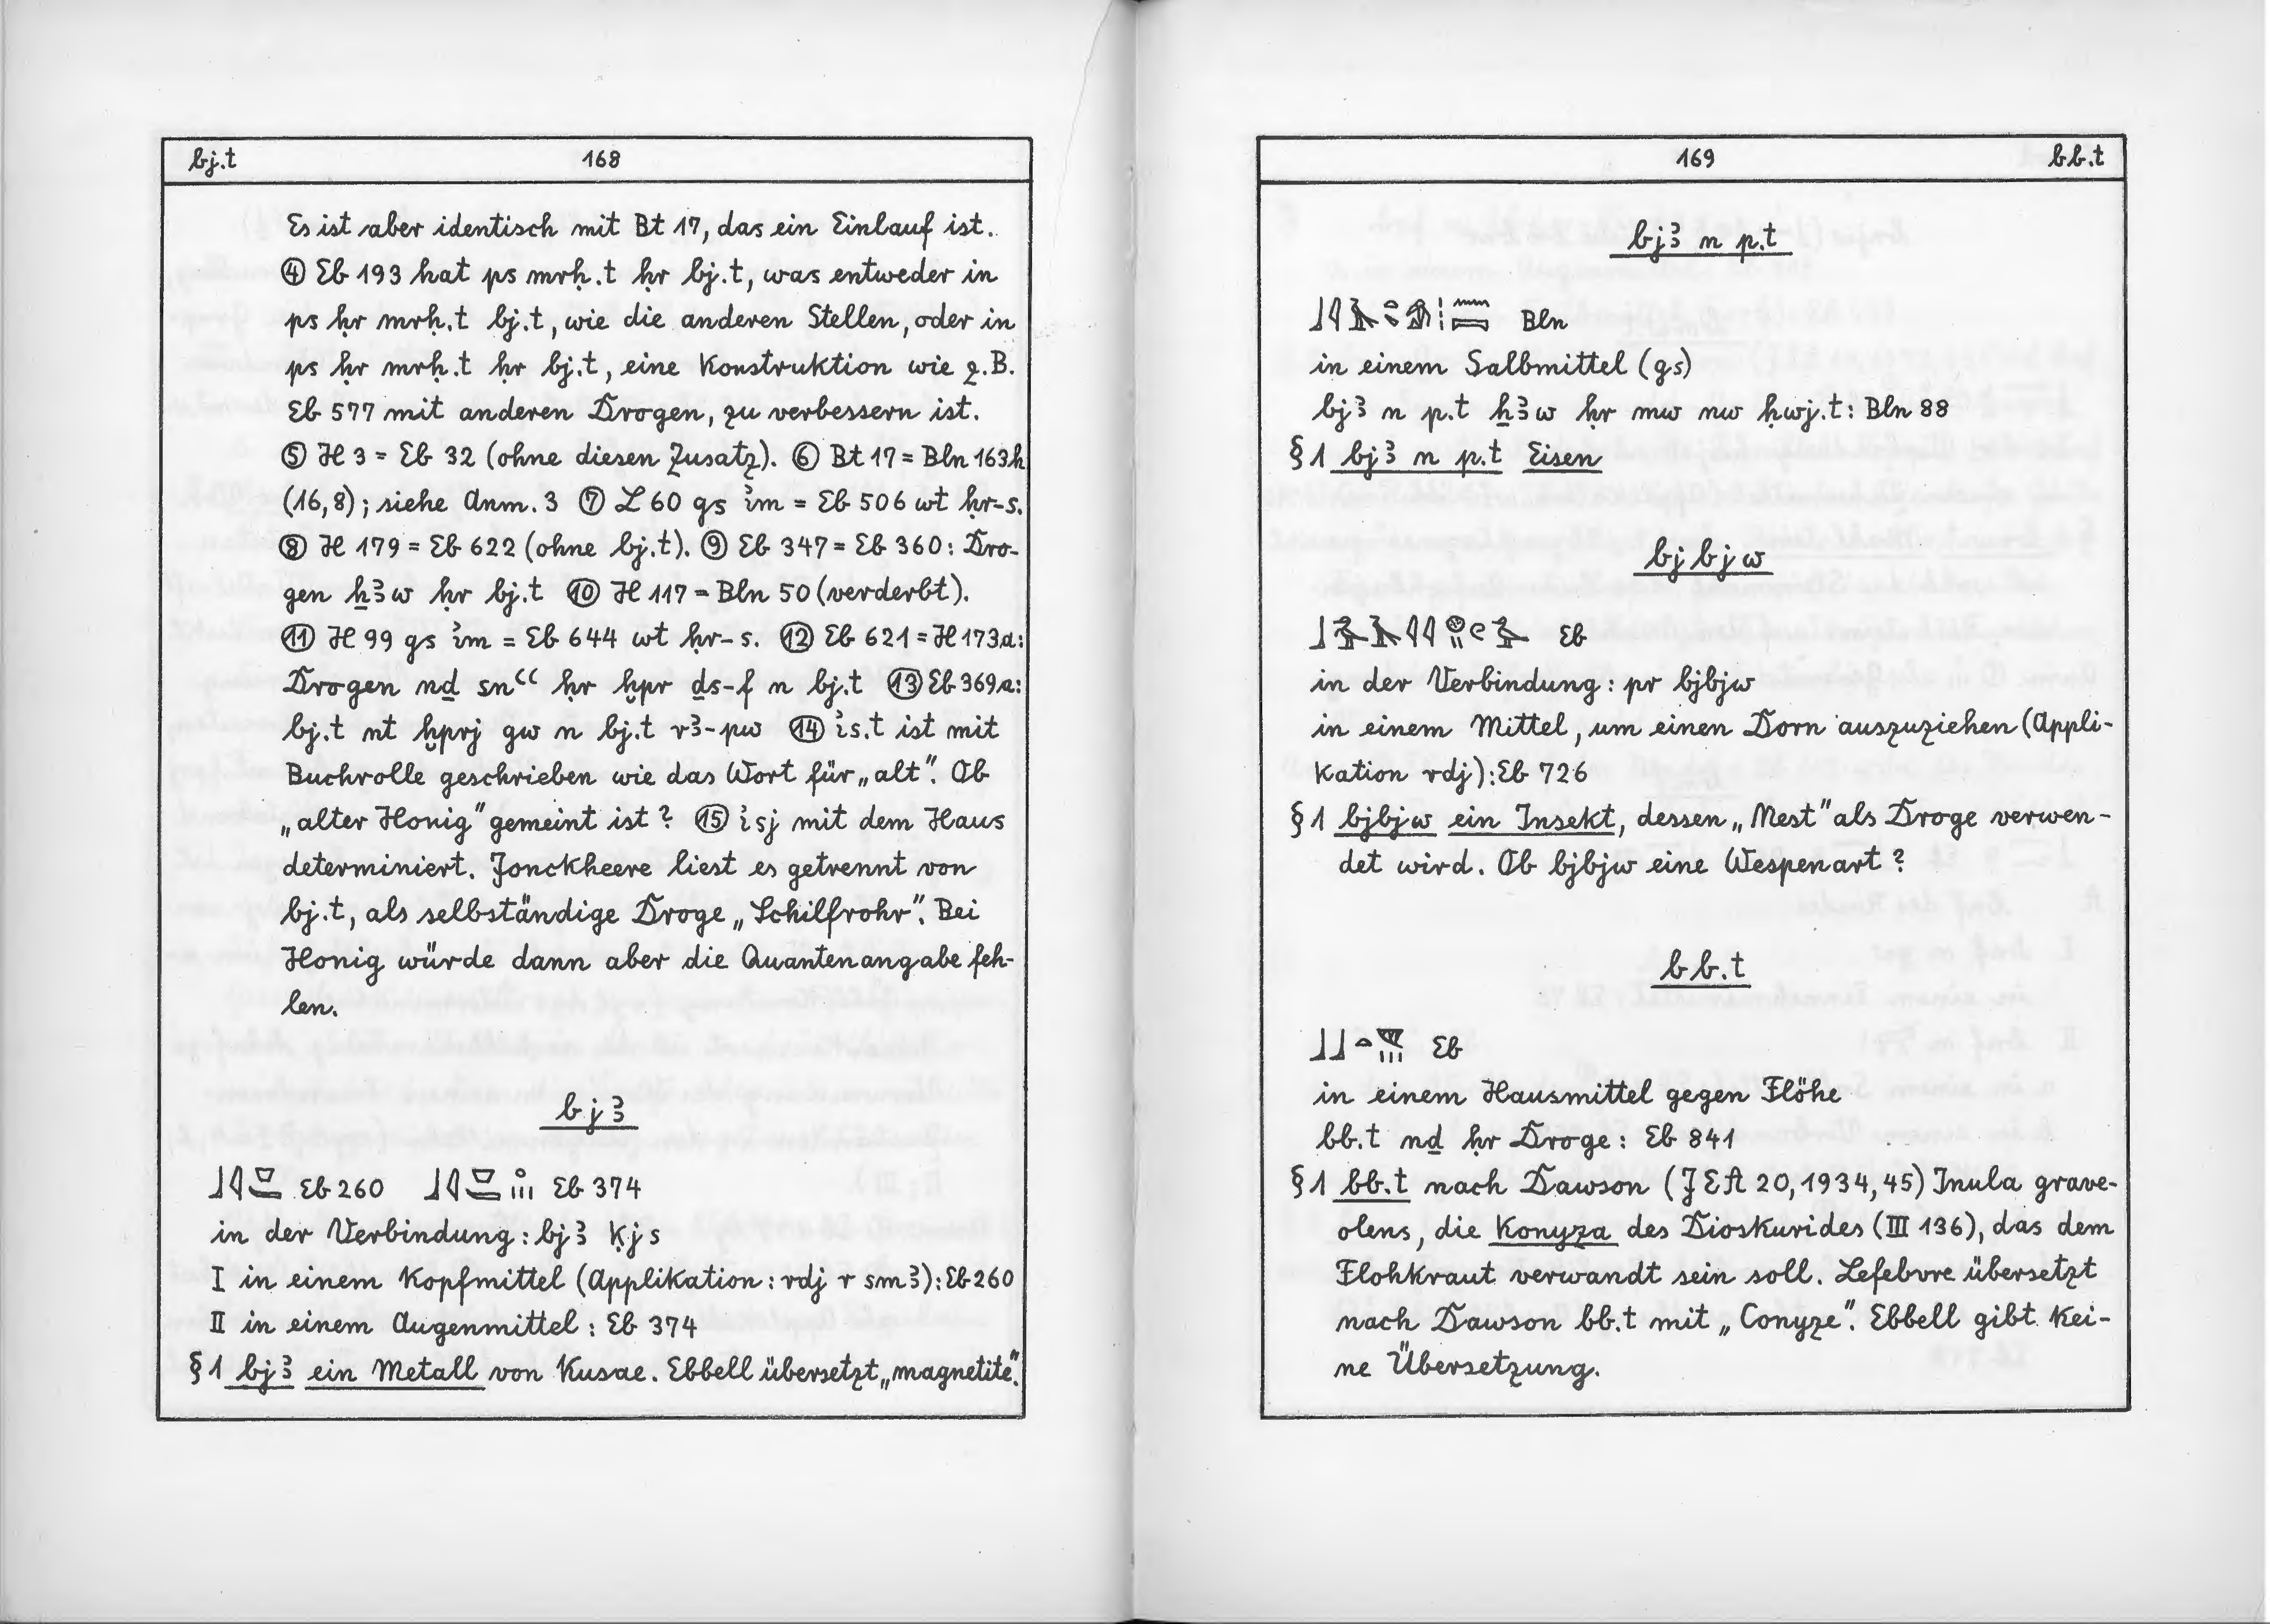 bj.t 168
Es ist aber identisch mit Bt 17, das ein Einlauf ist.
④ Eb 193 hat ps mrḥ.t ḥr bj.t, was entweder in
ps ḥr mrḥ.t bj.t, wie die anderen Stellen, oder in
ps ḥr mrḥ.t ḥr bj.t, eine Konstruktion wie z.B.
Eb 577 mit anderen Drogen, zu verbessern ist.
⑤ H 3 = Eb 32 (ohne diesen Zusatz). ⑥ Bt 17 = Bln 163h
(16,8); siehe Anm. 3 ⑦ L 60 gs ı͗m = Eb 506 wt ḥr-s.
⑧ H 179 = Eb 622 (ohne bj.t). ⑨ Eb 347 = Eb 360: Dro-
gen ẖꜣw ḥr bj.t ⑩ H 117 = Bln 50 (verderbt).
⑪ H 99 gs ı͗m = Eb 644 wt ḥr-s. ⑫ Eb 621 = H 173a:
Drogen nḏ snꜥꜥ ḥr ḫpr ḏs-f n bj.t ⑬ Eb 369a:
bj.t nt ḫprj gw n bj.t rꜣ-pw ⑭ ı͗s.t ist mit
Buchrolle geschrieben wie das Wort für „alt". Ob
„alter Honig" gemeint ist? ⑮ ı͗sj mit dem Haus
determiniert. Jonckheere liest es getrennt von
bj.t, als selbständige Droge „Schilfrohr". Bei
Honig würde dann aber die Quantenangabe feh-
len.
bjꜣ
Eb 260 Eb 374
in der Verbindung: bjꜣ ḳjs
I in einem Kopfmittel (Applikation: rdj r smꜣ): Eb 260
II in einem Augenmittel: Eb 374
§ 1 bjꜣ ein Metall von Kusae. Ebbell übersetzt „magnetite".
169 bb.t
bjꜣ n p.t
Bln
in einem Salbmittel (gs)
bjꜣ n p.t ẖꜣw ḥr mw nw ḥwj.t: Bln 88
§ 1 bjꜣ n p.t Eisen
bjbjw
Eb
in der Verbindung: pr bjbjw
in einem Mittel, um einen Dorn auszuziehen (Appli-
kation rdj): Eb 726
§ 1 bjbjw ein Insekt, dessen „Mest" als Droge verwen-
det wird. Ob bjbjw eine Wespenart?
bb.t
Eb
in einem Hausmittel gegen Flöhe
bb.t nḏ ḥr Droge: Eb 841
§ 1 bb.t nach Dawson (JEA 20, 1934, 45) Inula grave-
olens, die Konyza des Dioskurides (III 136), das dem
Flohkraut verwandt sein soll. Lefebvre übersetzt
nach Dawson bb.t mit „Conyze". Ebbell gibt kei-
ne Übersetzung.